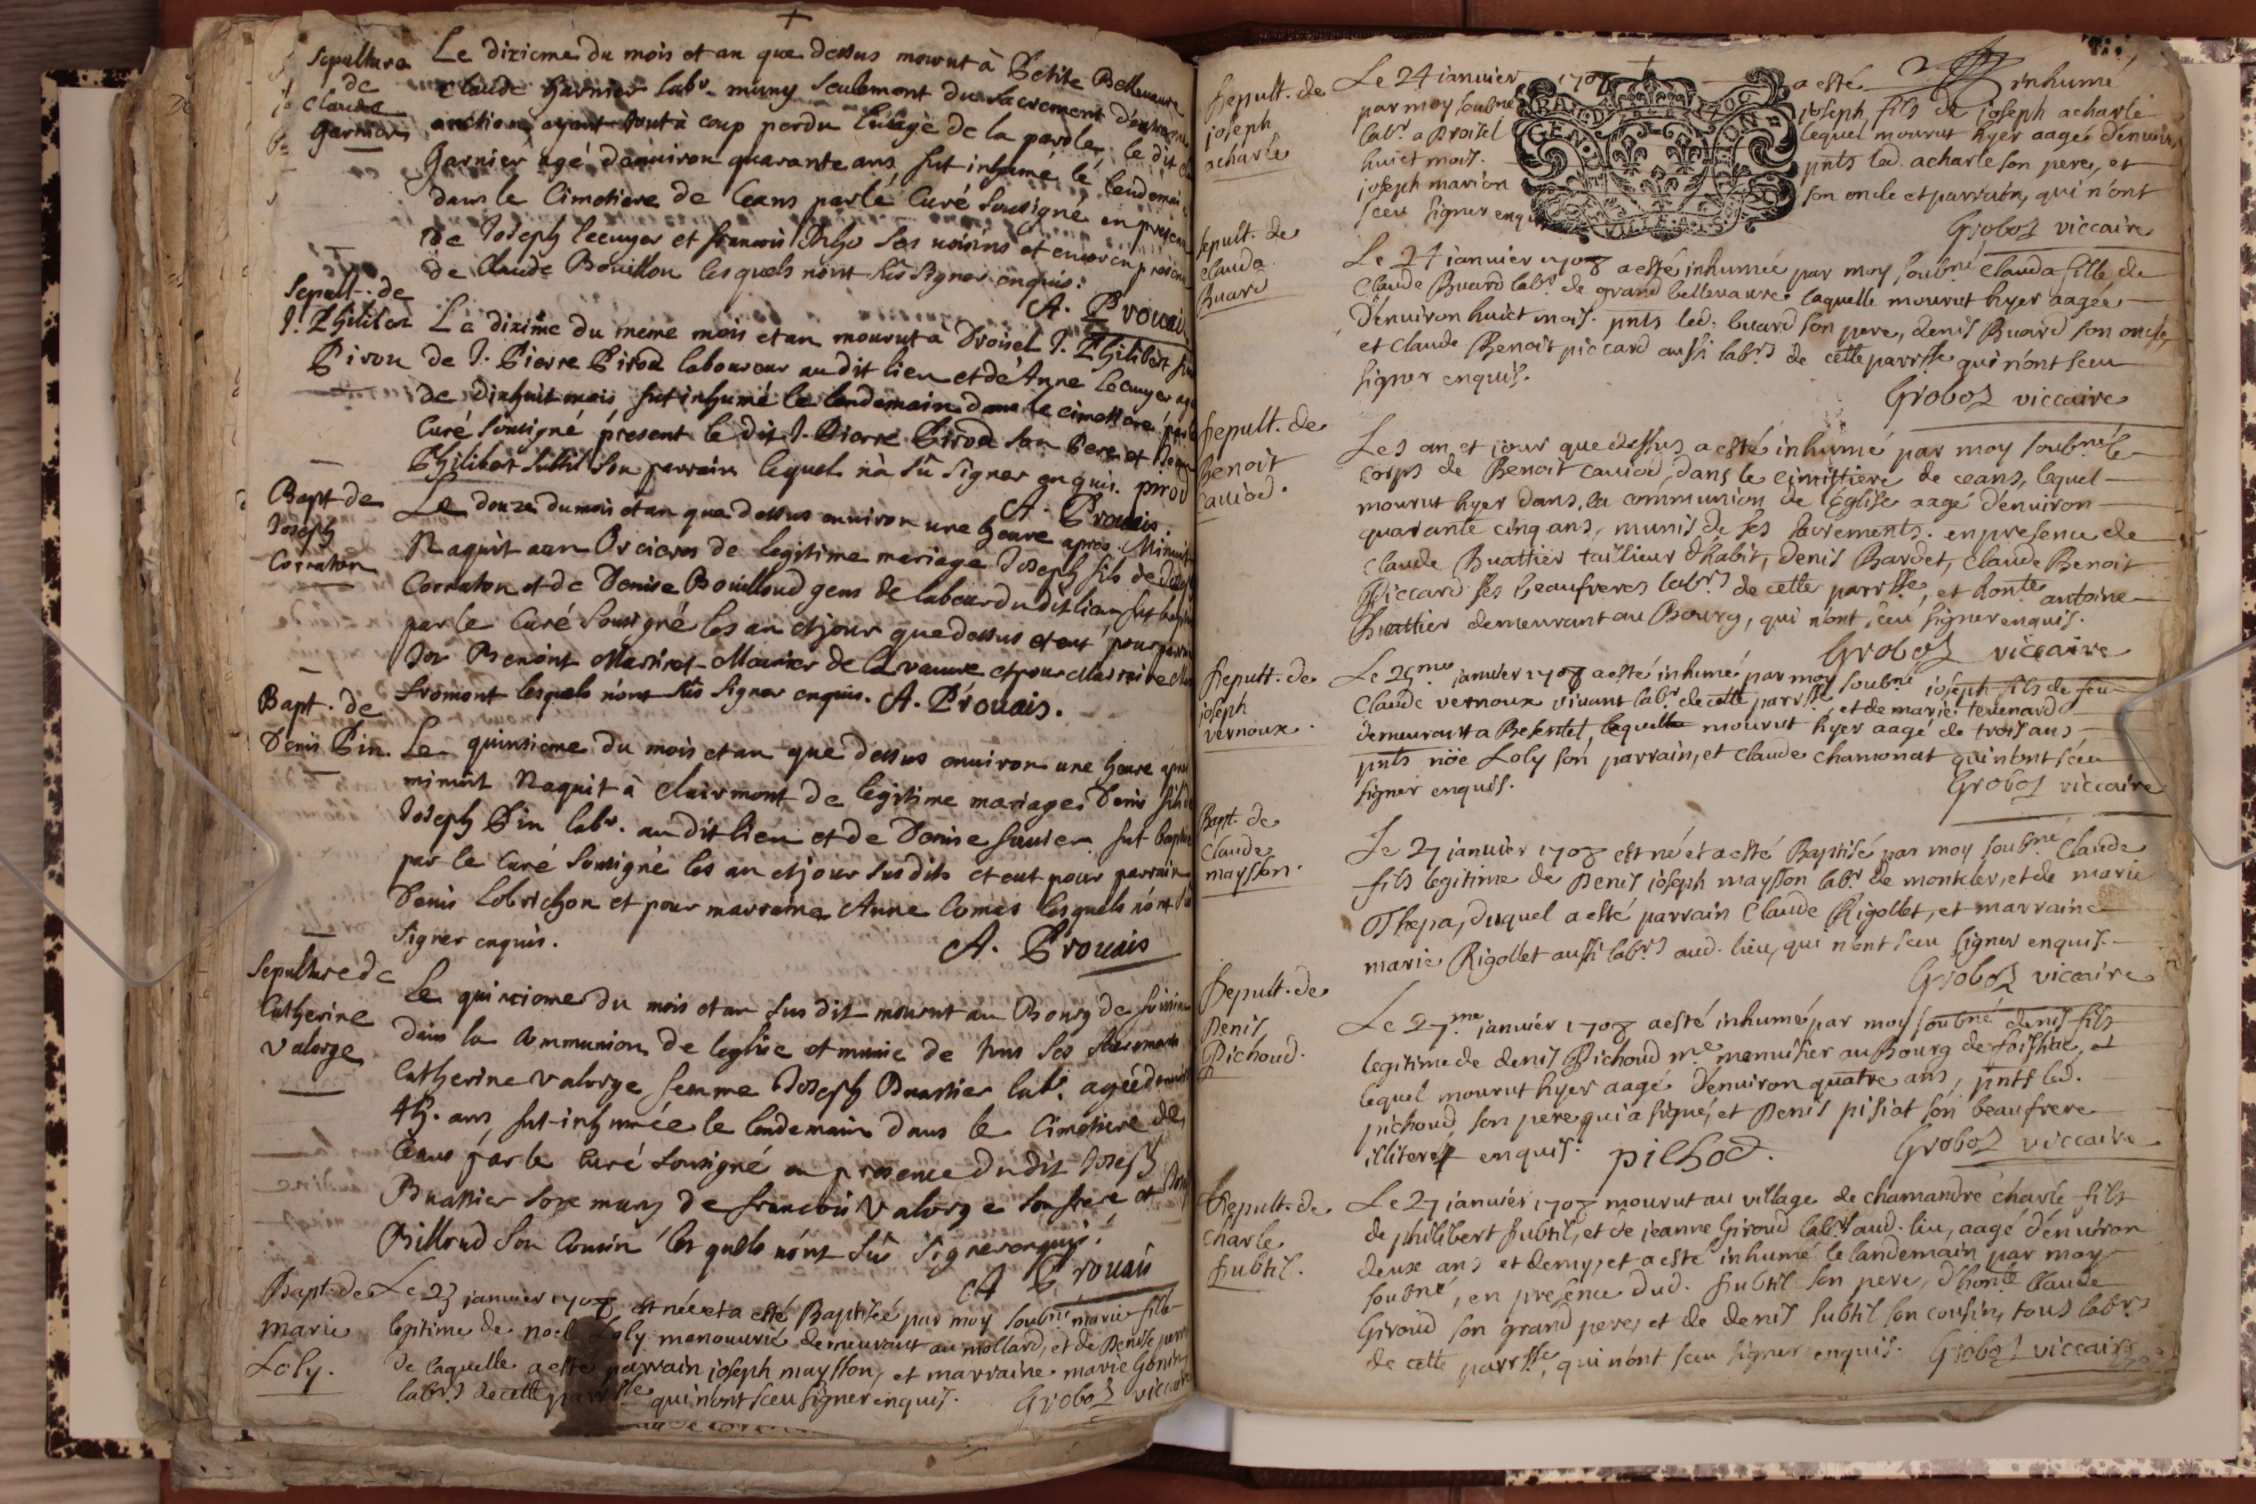 Sepulture
de
Claude
Garnier
Le dixieme du mois et an que dessus mourut à Petite Bellevavre
Claude Garnier labr. muny seulement du sacrement d'extreme
onction ayant tout à coup perdu l'usage de la parole. le dit
Garnier agé d'anuiron quarante ans, fut inhumé le lendemain
dans le Cimetiere de Ceans par le Curé sousigné en presence
de Joseph lecuyer et françois ses uoisins et encor en presence
de Claude Bouillon lesquels n'ont sûs signer enquis.
A. Prouais
Sepult. de
J. Philibert
Pirou
Le dixiême du meme mois et an mourut à Droisel J. Philibert fils
de J. Pierre Pirod laboureur au dit lieu et de Anne lecuyer agé
de dixhuit mois fut inhumé le lendemain dans le cimetiere par le
Curé sousigné present le dit J. Pierre Pirod son Pere et
Philibert subtil son parrain lequel n'a sû signer enquis. pirod
A. Prouais.
Bapt. de
Joseph
Corraton
Le douze du mois et an que dessus enuiron une heure apres Minuit
Naquit aux Orcieres de legitime mariage Joseph fils de
Corraton et de Denise Bouilloud gens de labeur du dit lieu fut baptisé
par le Curé sousigné les an et jour que dessus et eut pour parrain
Benoint Martinet Meunier de la vavure et pour Marraine
fromont lesquels n'ont sûs signer enquis. A. Prouais.
Bapt. de
Denis Pin.
Le quinsieme du mois et an que dessus enuiron une heure apres
minuit Naquit à Clairmont de legitime mariage Denis fils de
Joseph Pin labr. au dit lieu et de Denise sauier fut baptisé
par le Curé sousigné les an et jour sus dits et eut pour parrain
Denis Lobrichon et pour marraine Anne Comas lesquels n'ont sû
signer enquis.
A. Prouais
Sepulture de
Catherine
Valorge
Le quinzieme du mois et an sus dit mourut au Bourg de
dans la Communion de leglise et munie de tous ses sacrements
Catherine Valorge femme Joseph Buattier labr. agée d'enuiron
45. ans, fut inhumée le lendemain dans le Cimetiere de
Ceans par le Curé sousigné en presence du dit Joseph
Buattier son mary de francois Valorge son frere et
Billoud son Cousin lesquels n'ont sûs signer enquis.
A Prouais
Bapt. de
marie
Loly.
Le 23 janvier 1708 est née et a esté Baptisée par moy soubné marie fille
legitime de noel Loly manouurié demeurant au mollard, et de Denise
de laquelle a esté parrain joseph maysson, et marraine marie Gonin
labrs de cette parrsse qui n'ont sceu signer enquis.
Groboz viccaire
Sepult. de
joseph
acharle
Le 24 janvier 1708 a esté inhumé
par moy soubné joseph fils de joseph acharle
labr a Droisel lequel mourut hyer aagée d'enuiron
huict mois. pnts led. acharle son pere, et
joseph marion son oncle et parrain, qui n'ont
sceu signer enquis
GENERA
Groboz viccaire
Sepult. de
Clauda
Buard
Le 24 janvier 1708 a esté inhumée par moy soubné Clauda fille de
Claude Buard labr de grand bellevavre laquelle mourut hyer aagée
d'enuiron huict mois. pnts led. buard son pere, denis Buard son oncle,
et Claude Benoit piccard aussi labrs de cette parrsse qui n'ont sceu
signer enquis.
Groboz viccaire
Sepult. de
Benoit
Cauiod.
Les an et jour que dessus a esté inhumé par moy soubné le
corps de Benoit Cauiod, dans le cimittiere de ceans, lequel
mourut hyer dans la communion de l'Eglise aagé d'enuiron
quarante cinq ans, munis de ses sacrements. en presence de
Claude Buattier tailleur d'habit, denis Bardet, Claude Benoit
Piccard ses beaufreres labrs de cette parrsse, et honte antoine
Buattier demeurant au Bourg, qui n'ont sceu signer enquis.
Groboz viccaire
Sepult. de
joseph
vernoux.
Le 25me janvier 1708 a esté inhumé par moy soubné joseph fils de feu
Claude vernoux vivant labr de cette parrsse, et de marie teuenard
demeurant a Besentet, lequelle mourut hyer aagé de trois ans
pnts nöe Loly son parrain, et Claude chamonat qui n'ont sceu
signer enquis.
Groboz viccaire
Bapt. de
Claude
maysson.
Le 27 janvier 1708 est né et a esté Baptisé par moy soubné Claude
fils legitime de Denis joseph maysson labr de montcler, et de marie
Thepa, duquel a esté parrain Claude Rigollet, et marraine
marie Rigollet aussi labrs aud. lieu, qui n'ont sceu signer enquis.
Groboz viccaire
Sepult. de
Denis
Pichoud.
Le 27me janvier 1708 a esté inhumé par moy soubné denis fils
legitime de denis Pichoud me menuisier au Bourg de foissiac, et
lequel mourut hyer aagé d'enuiron quatre ans, pnts led.
pichoud son pere qui a signé, et Denis pisiat son beaufrere
illiteré enquis. pichod.
Groboz viccaire
Sepult. de
Charle
Subtil.
Le 27 janvier 1708 mourut au village de chamandré charle fils
de philibert subtil, et de jeanne Giroud labrs aud. lieu, aagé d'enuiron
deux ans et demy, et a esté inhumé le landemain par moy
soubné, en presence dud. subtil son pere, d'honte Claude
Giroud son grand pere, et de denis subtil son cousin, tous labrs
de cette parrsse, qui n'ont sceu signer enquis. Groboz viccaire